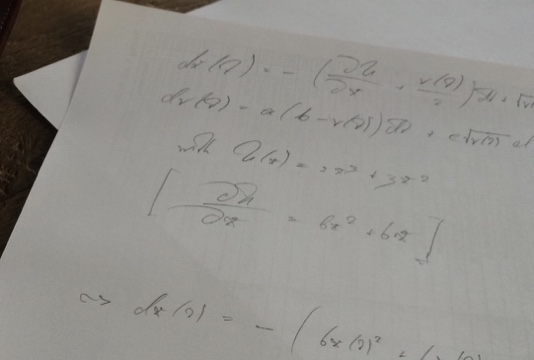 dx(t) = - (∂U/∂x + v(t)/2) dt + √v
dv(t) = a(b - v(t)) dt + c√v(t) d
with U(x) = 2x³ + 3x²
[∂U/∂x = 6x² + 6x]
~> dx(t) = - (6x(t)² +